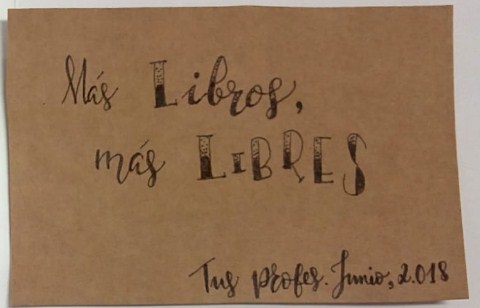 Más Libros,
más LIBRES
Tus profes. Junio, 2.018